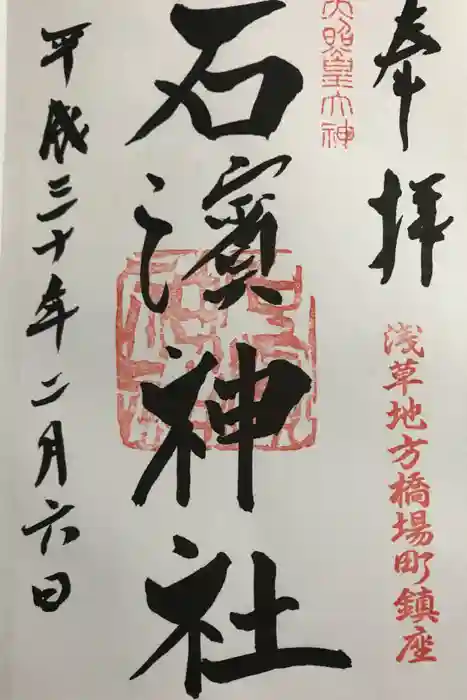 奉拝
浅草地方橋場町鎮座
天照皇大神
石濱神社
平成三十年二月六日